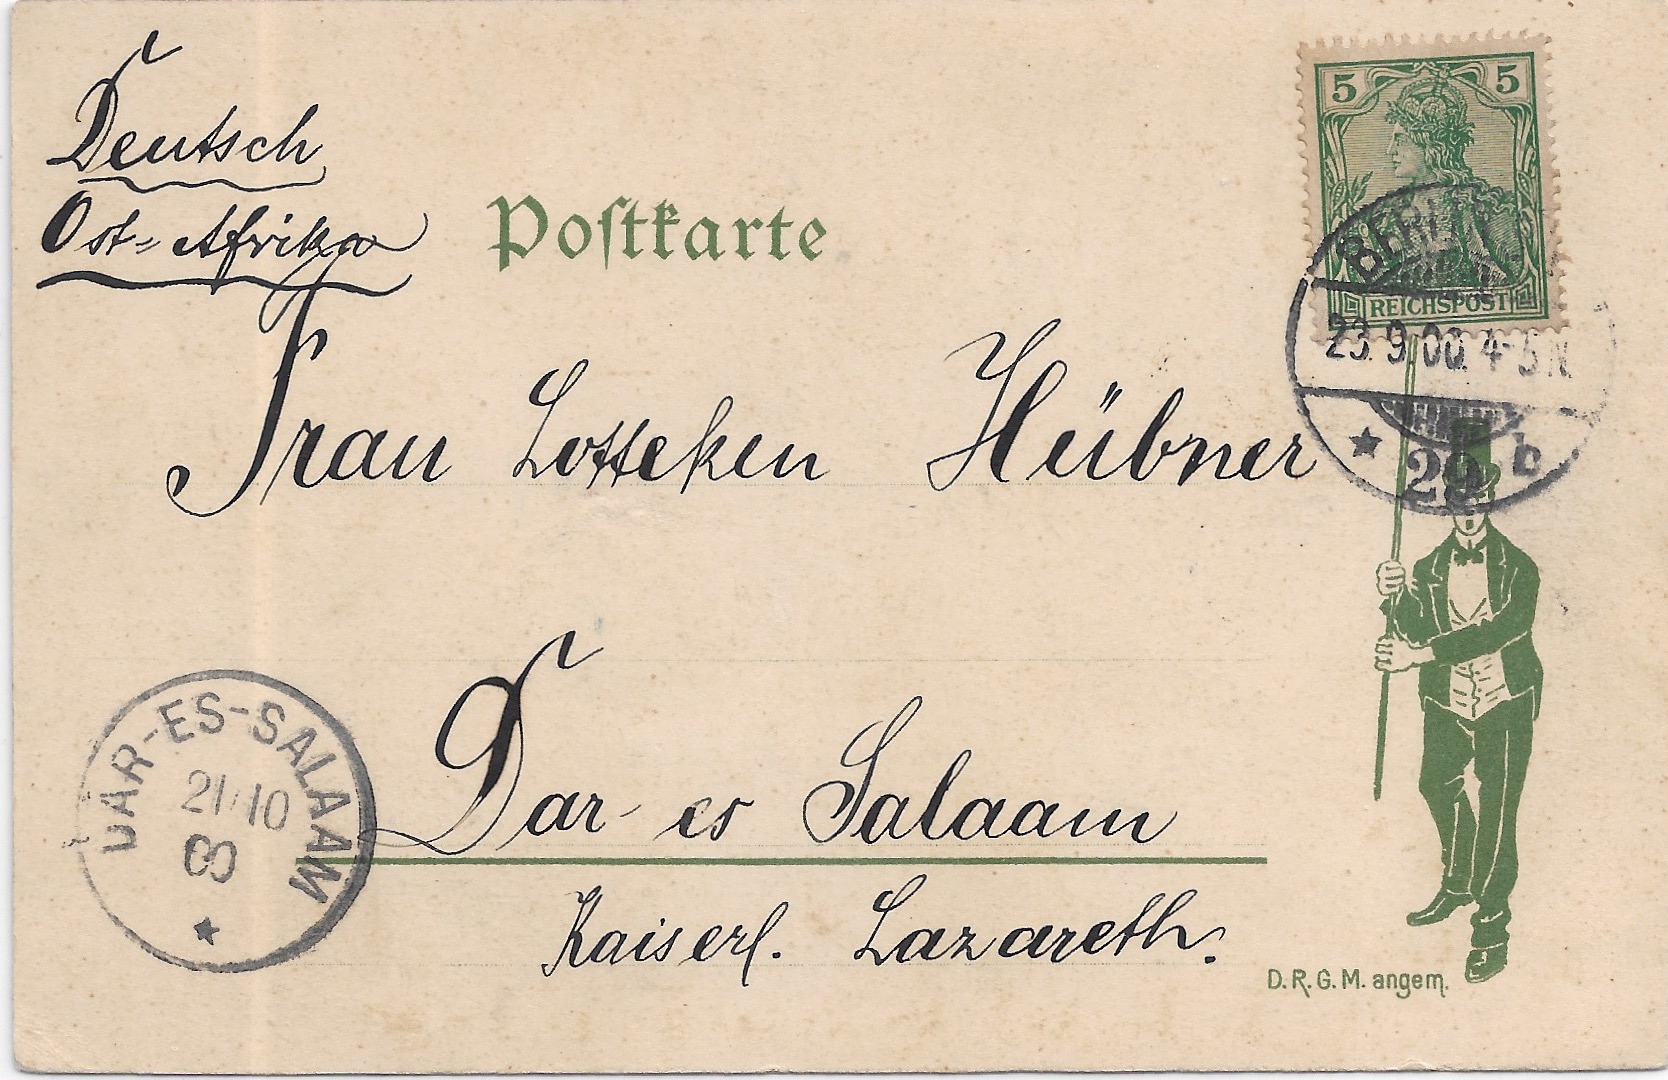 Deutsch
Ost-Afrika
Postkarte
5 5
REICHSPOST
BERLIN
23.9.00.4-5N
29 b
Frau Lotteken Hübner
DAR-ES-SALAAM
21/10
00
Dar-es Salaam
Kaiserl. Lazareth.
D.R.G.M. angem.